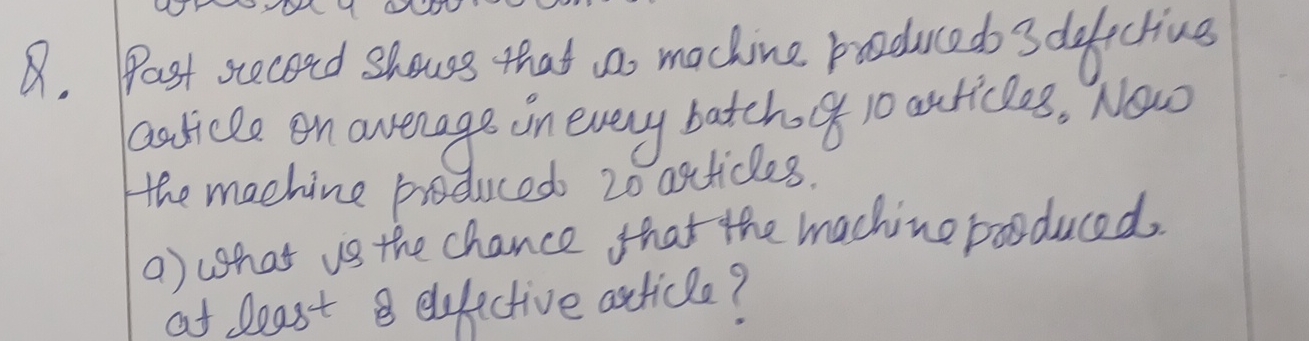 Q. Past record shows that a machine produced 3 defective
article on average in every batch of 10 articles. Now
the machine produced 20 articles.
a) what is the chance that the machine produced
at least 8 defective article?